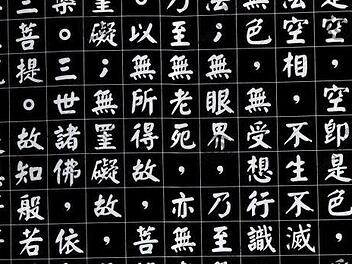 空，空即是色，
法空相，不生不滅
色，無受想行識
法；無眼界，乃至
乃至無老死，亦無
。以無所得故，菩
罣礙；無罣礙故，
槃。三世諸佛，依
三菩提。故知般若